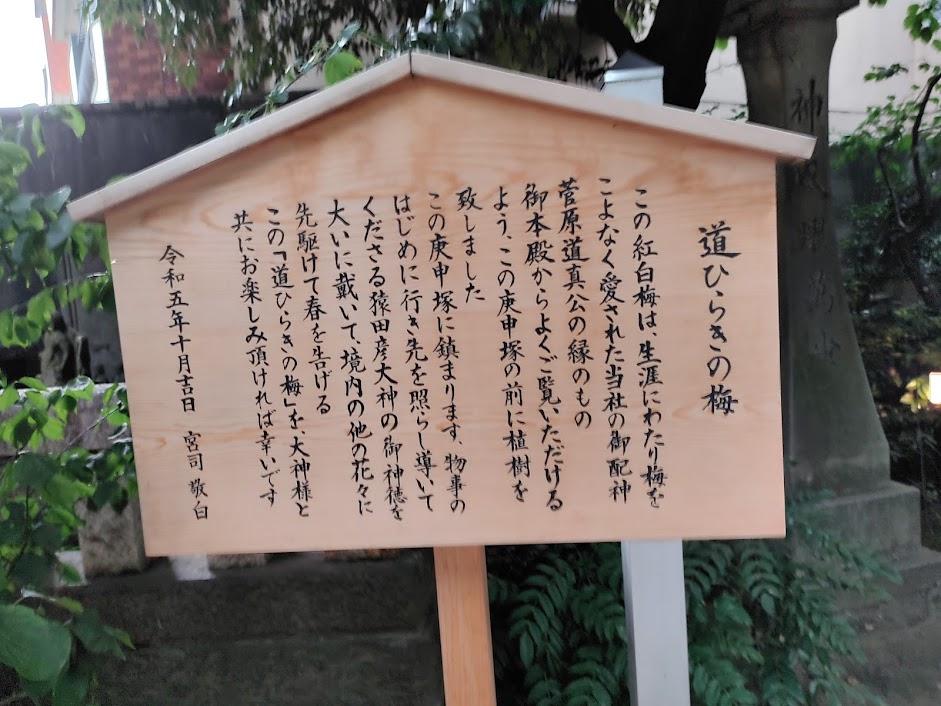 道ひらきの梅
この紅白梅は、生涯にわたり梅を
こよなく愛された当社の御配神
菅原道真公の縁のもの
御本殿からよくご覧いただける
よう、この庚申塚の前に植樹を
致しました
この庚申塚に鎮まります、物事の
はじめに行き先を照らし導いて
くださる猿田彦大神の御神徳を
大いに戴いて、境内の他の花々に
先駆けて春を告げる
この「道ひらきの梅」を、大神様と
共にお楽しみ頂ければ幸いです
令和五年十月吉日 宮司 敬白